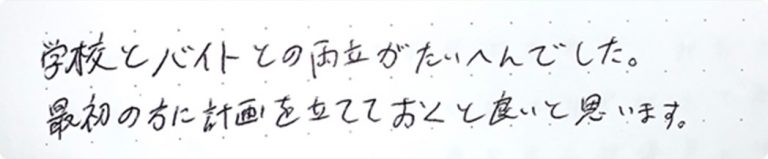 学校とバイトとの両立がたいへんでした。
最初の方に計画を立てておくと良いと思います。